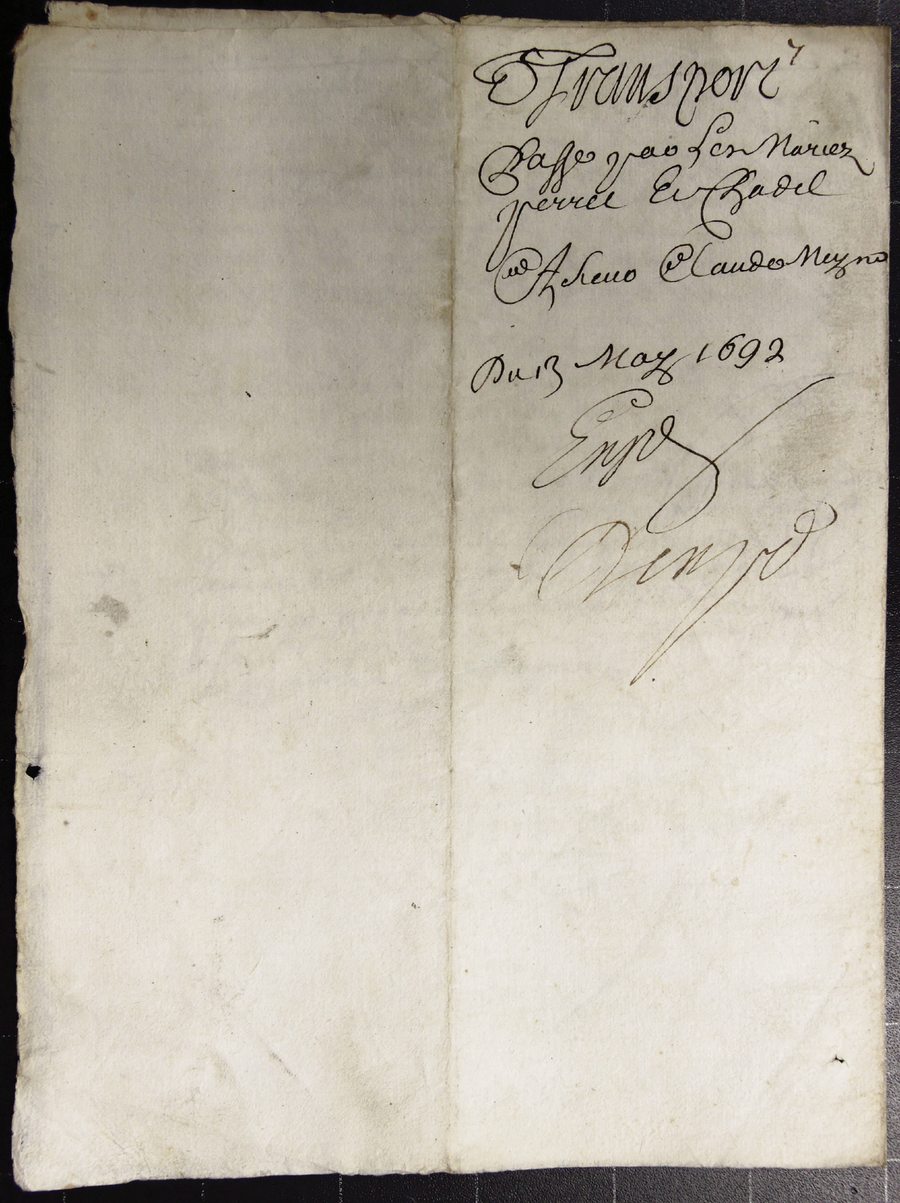 Transport
Passe par Les Mariez
perret Et Chadel
A Sieur Claude Meyn
Du 13 May 1692
Exped